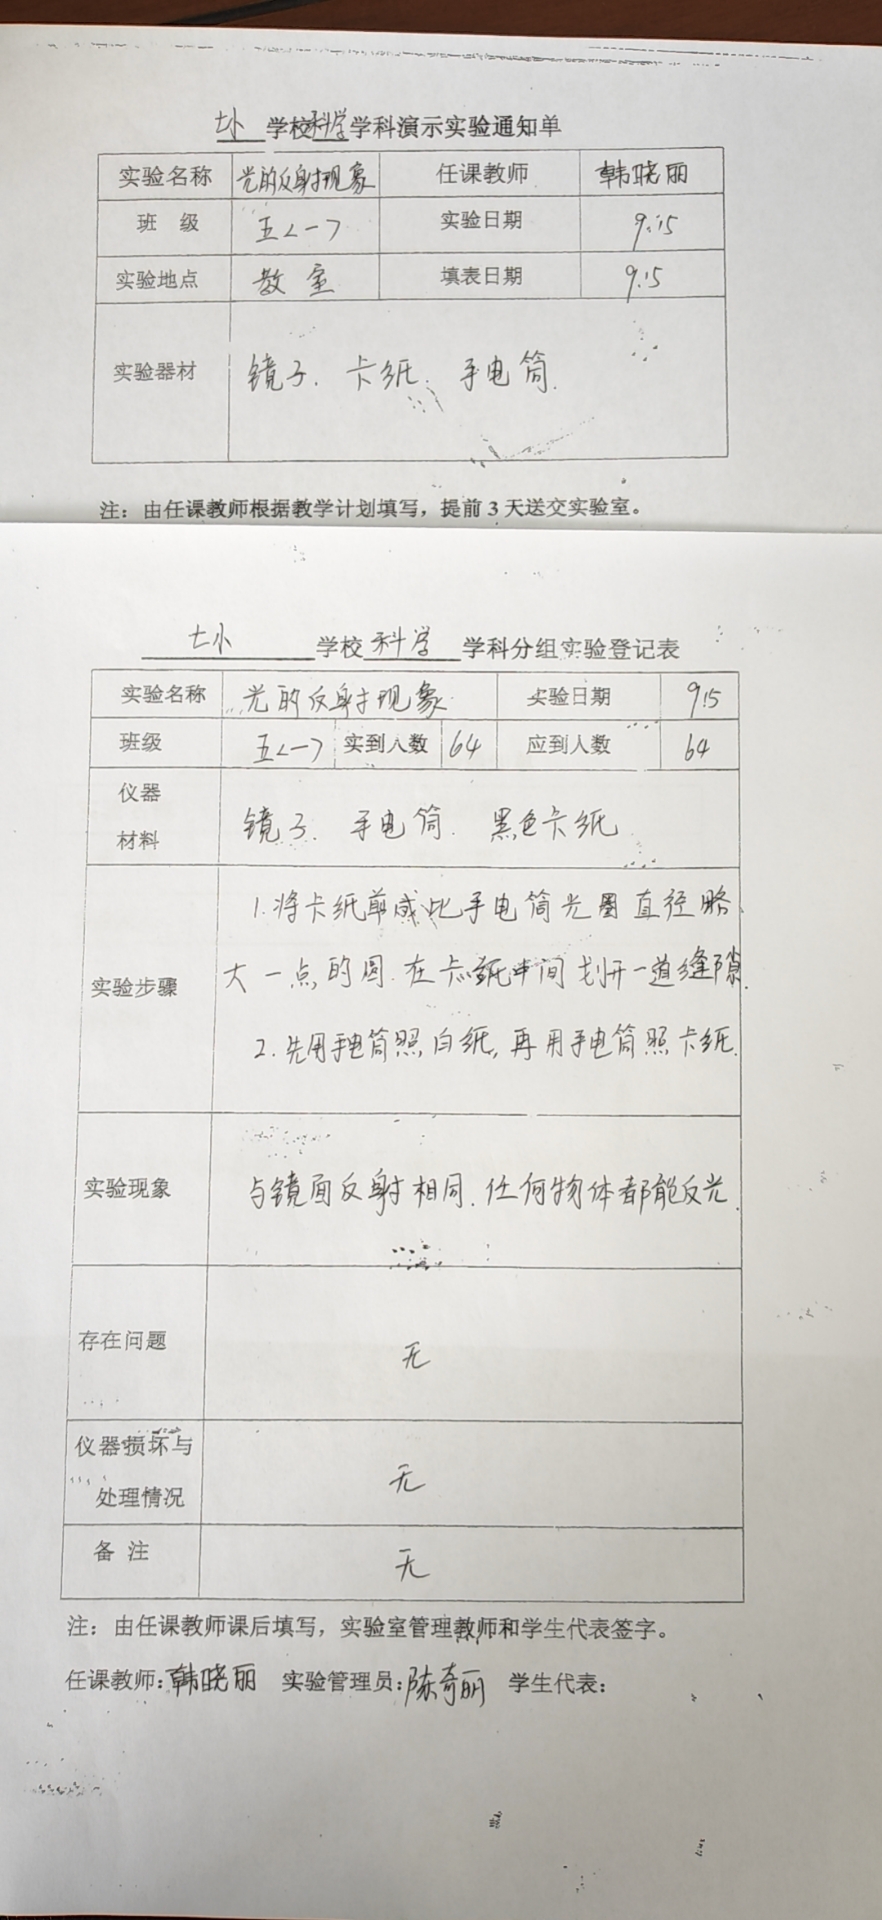 七小 学校科学学科演示实验通知单
实验名称 光的反射现象 任课教师 韩晓丽
班 级 五<一> 实验日期 9.15
实验地点 教室 填表日期 9.15
实验器材 镜子. 卡纸. 手电筒.
注：由任课教师根据教学计划填写，提前3天送交实验室。
七小 学校 科学 学科分组实验登记表
实验名称 光的反射现象 实验日期 9.15
班级 五<一> 实到人数 64 应到人数 64
仪器
材料
镜子. 手电筒. 黑色卡纸
1.将卡纸剪成比手电筒光圈直径略
实验步骤 大一点的圆.在卡纸中间划开一道缝隙.
2.先用手电筒照白纸,再用手电筒照卡纸.
实验现象 与镜面反射相同.任何物体都能反光.
存在问题 无
仪器损坏与
处理情况 无
备 注 无
注：由任课教师课后填写，实验室管理教师和学生代表签字。
任课教师:韩晓丽 实验管理员:陈奇丽 学生代表: